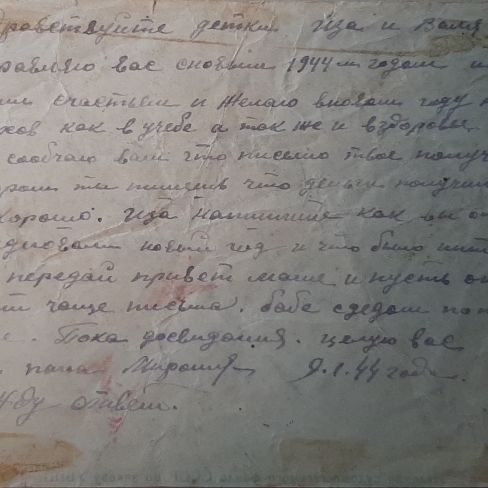 равствуйте детки Иза и Валя
равляю вас сновым 1944 м годом и
счастьем и желаю вновом году
хов как в учебе а так же и вздоровье
сообчаю вам что письмо твое получ
ты пишешь что деньги получил
хорошо. Иза напишите как вы
новый год и что было инт
передай привет маме и пусть
чаще письма. бабе с дедом по
Пока досвидания. целую вас
папа 9.1.44 года.
жду ответ.